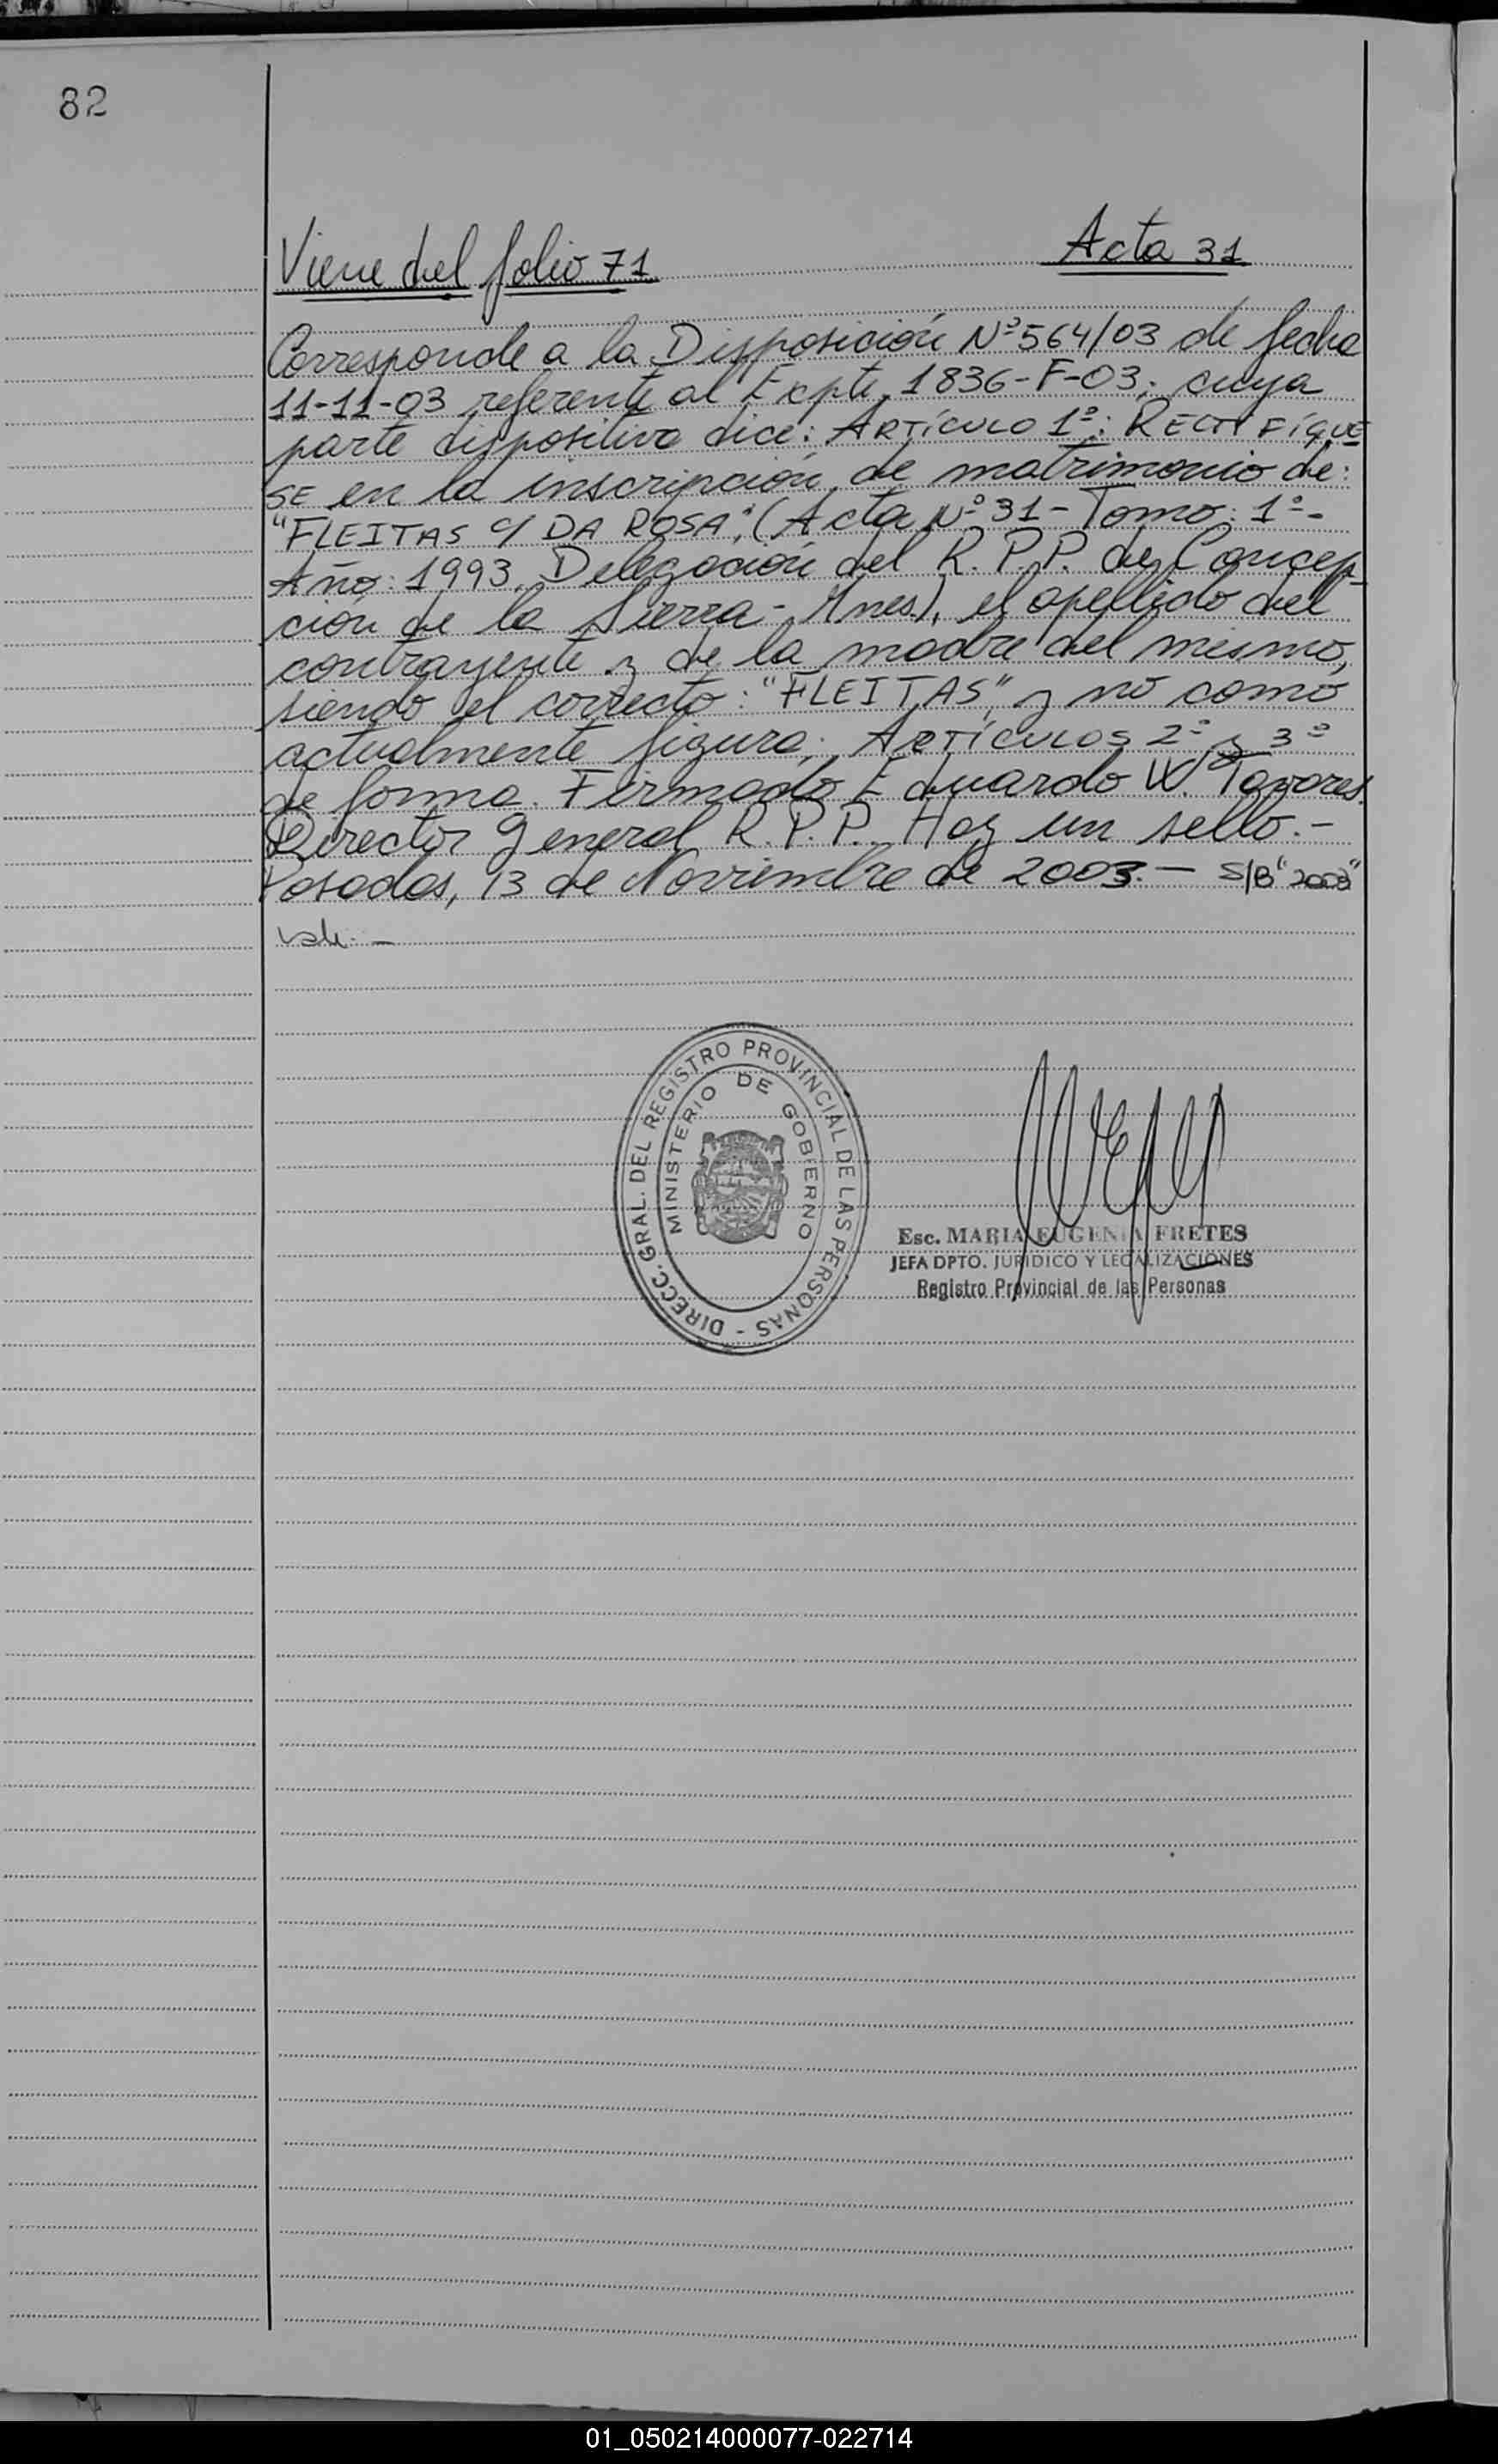 82
Viene del folio 71
Acta 31
Corresponde a la Disposición Nº 564/03 de fecha
11-11-03 referente al Expte. 1836-F-03; cuya
parte dispositiva dice: ARTÍCULO 1º: RECTIFÍQUE
SE en la inscripción de matrimonio de:
"FLEITAS c/ DA ROSA", (Acta Nº 31 - Tomo: 1º -
Año: 1993. Delegación del R.P.P. de Concep-
ción de la Sierra - Mnes.), el apellido del
contrayente y de la madre del mismo,
siendo el correcto: "FLEITAS", y no como
actualmente figura. ARTÍCULOS 2º y 3º
de forma. Firmado Eduardo W. Tavares.
Director General R.P.P. Hay un sello.-
Posadas, 13 de Noviembre de 2003.- S/B "2003"
vale.-
DIRECC. GRAL. DEL REGISTRO PROVINCIAL DE LAS PERSONAS -
MINISTERIO DE GOBIERNO
Esc. MARIA EUGENIA FRETES
JEFA DPTO. JURIDICO Y LEGALIZACIONES
Registro Provincial de las Personas
01_050214000077-022714